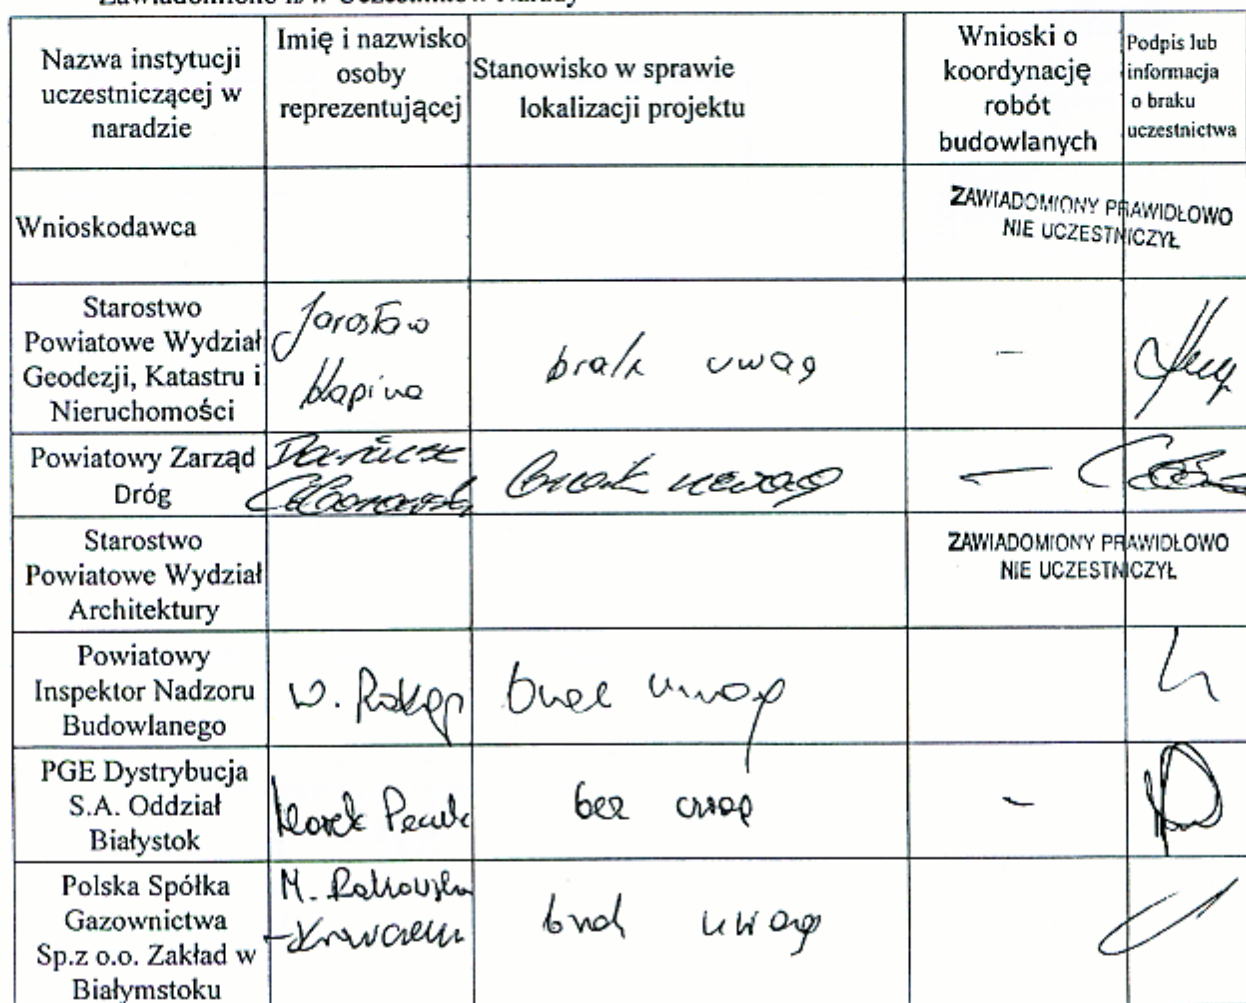 Zawiadomiono n/w Uczestników Narady
Nazwa instytucji uczestniczącej w naradzie
Imię i nazwisko osoby reprezentującej
Stanowisko w sprawie lokalizacji projektu
Wnioski o koordynację robót budowlanych
Podpis lub informacja o braku uczestnictwa
Wnioskodawca
ZAWIADOMIONY PRAWIDŁOWO
NIE UCZESTNICZYŁ
Starostwo
Powiatowe Wydział
Geodezji, Katastru i
Nieruchomości
Jarosław
brak uwag
-
Powiatowy Zarząd
Dróg
Dariusz
brak uwag
-
Starostwo
Powiatowe Wydział
Architektury
ZAWIADOMIONY PRAWIDŁOWO
NIE UCZESTNICZYŁ
Powiatowy
Inspektor Nadzoru
Budowlanego
W.
brak uwag
PGE Dystrybucja
S.A. Oddział
Białystok
Marek
bez uwag
-
Polska Spółka
Gazownictwa
Sp.z o.o. Zakład w
Białymstoku
M. Rakowska
brak uwag